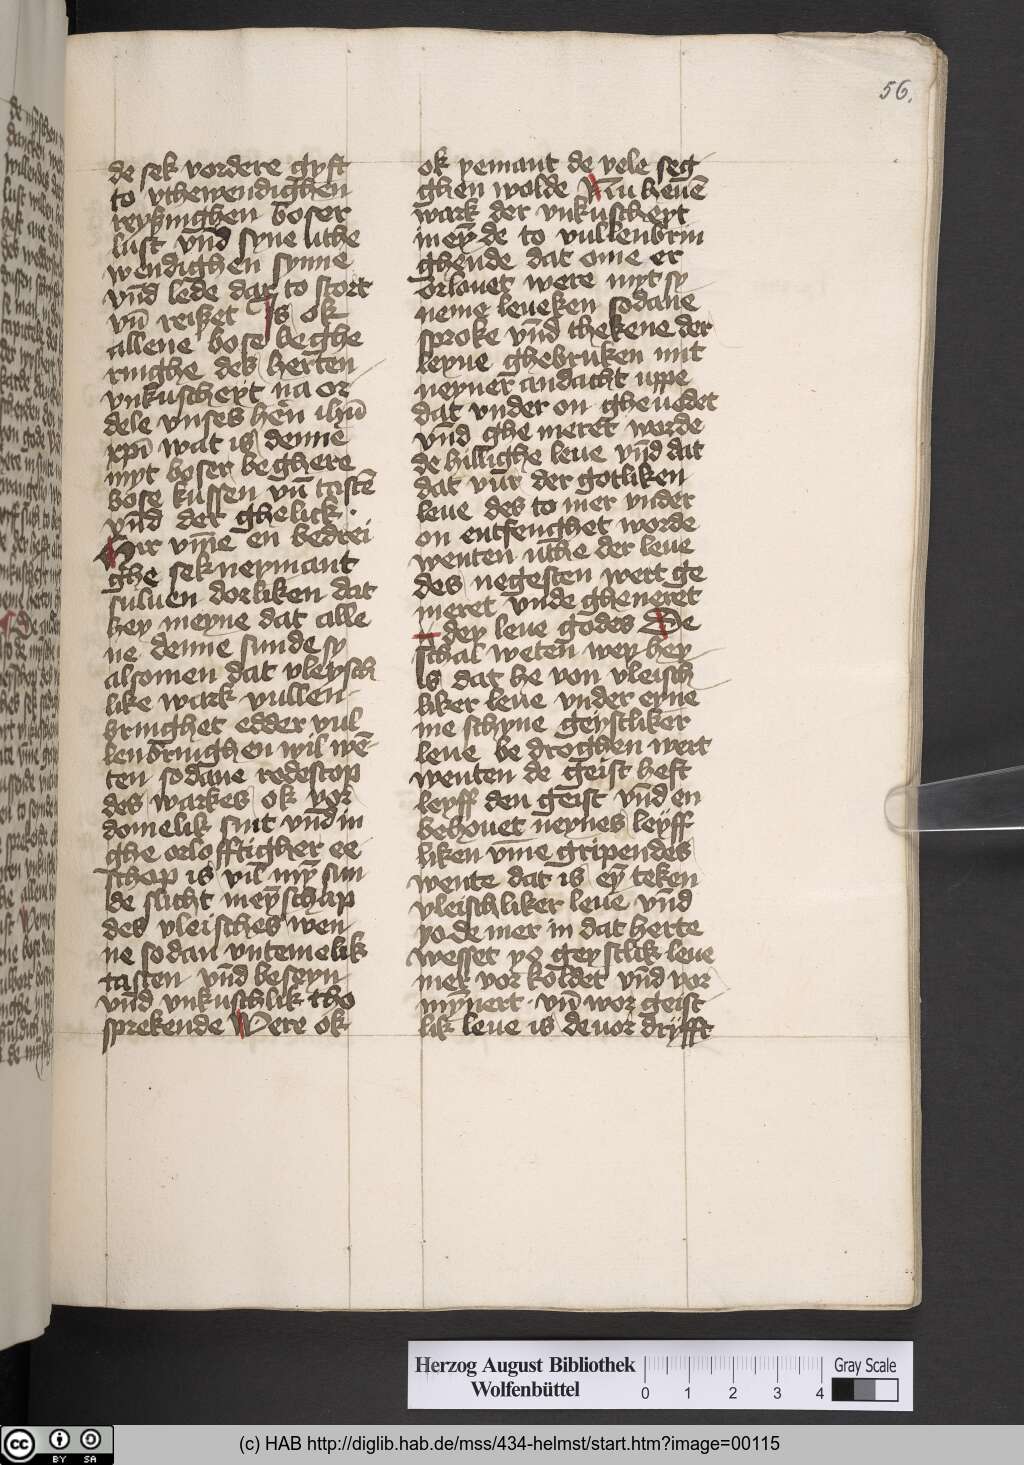 56.
de sek vordere gyft
to vthewendighen
reysinghen boser
lust vnd syne uthe
wendighen synne
vnd lede dar to stort
vn̄ reiset Is ok
allene bose beghe
ringhe des herten
vnkuscheyt na or
dele vnses hēn ihū
xp̄i wat is denne
myt boser beghere
bose kussen vn̄ tastē
vnd der ghelick
Hir vm̄e en bedrei
ghe sek neymant
suluen dorliken dat
hey meyne dat alle
ne denne sunde sy
alsomen dat vleysch
like wark vullen
bringhet edder vul
lenbringhen wil wē
ten sodane redescop
des warkes ok vor
domelik sint vnd in
ghe orlofftigher ee
schap is vil myn̄ sun
de slicht meyn̄schap
des vleisches wen
ne sodan vntemelik
tasten vnd beseyn
vnd vnkuschlik tho
sprekende Were ok
ok yemant de vele seg
ghen wolde Nu heuē
wark der vnkuscheyt
mey de to vullenbrin
ghende dat ome er
orlouet were myt sy
neme leueken sodane
sproke vnd thekene der
leyue ghebruken mit
neyner andacht uppe
dat vnder on gheuedet
vnd ghe meret worde
de hillighe leue vnd dat
dat vur der gotliken
leue des to mer vnder
on entfenghet worde
wenten uthe der leue
des negesten wert ge
meret vnde gheneret
dey leue godes De
schal weten wey hey
is dat he von vleisch
liker leue vnder eyne
me schyne geystliker
leue be droghen wert
wenten de geist heft
leyff den geist vnd en
behouet neynes leyff
liken vm̄e gripendes
wente dat is ey teken
vleischliker leue vnd
yo de mer in dat herte
wesset yo geystlik leue
mer vor koldet vnd vor
mynert vn̄ wor geist
lik leue is de vor dryfft
Herzog August Bibliothek
Wolfenbüttel
0 1 2 3 4
Gray Scale
cc BY SA
(c) HAB http://diglib.hab.de/mss/434-helmst/start.htm?image=00115